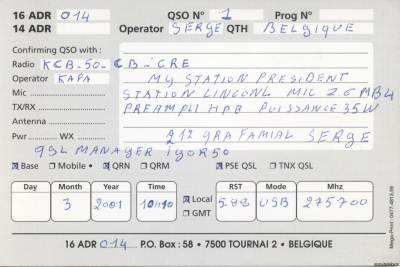 16 ADR 014 QSO N° 1 Prog N°
14 ADR Operator SERGE QTH BELGIQUE
Confirming QSO with :
Radio KCB-50-CB-CRE
Operator KAPA MY STATION PRESIDENT
Mic STATION LINCONL MIL 26 MB4
TX/RX PREAMPLI HPB PUISSANCE 35W
Antenna
Pwr WX 73 SERGE
QSL MANAGER IGOR50
Base Mobile • QRN QRM PSE QSL TNX QSL
Day Month Year Time Local GMT RST Mode Mhz
3 2001 10H10 588 USB 275700
16 ADR 014 P.O. Box : 58 • 7500 TOURNAI 2 • BELGIQUE